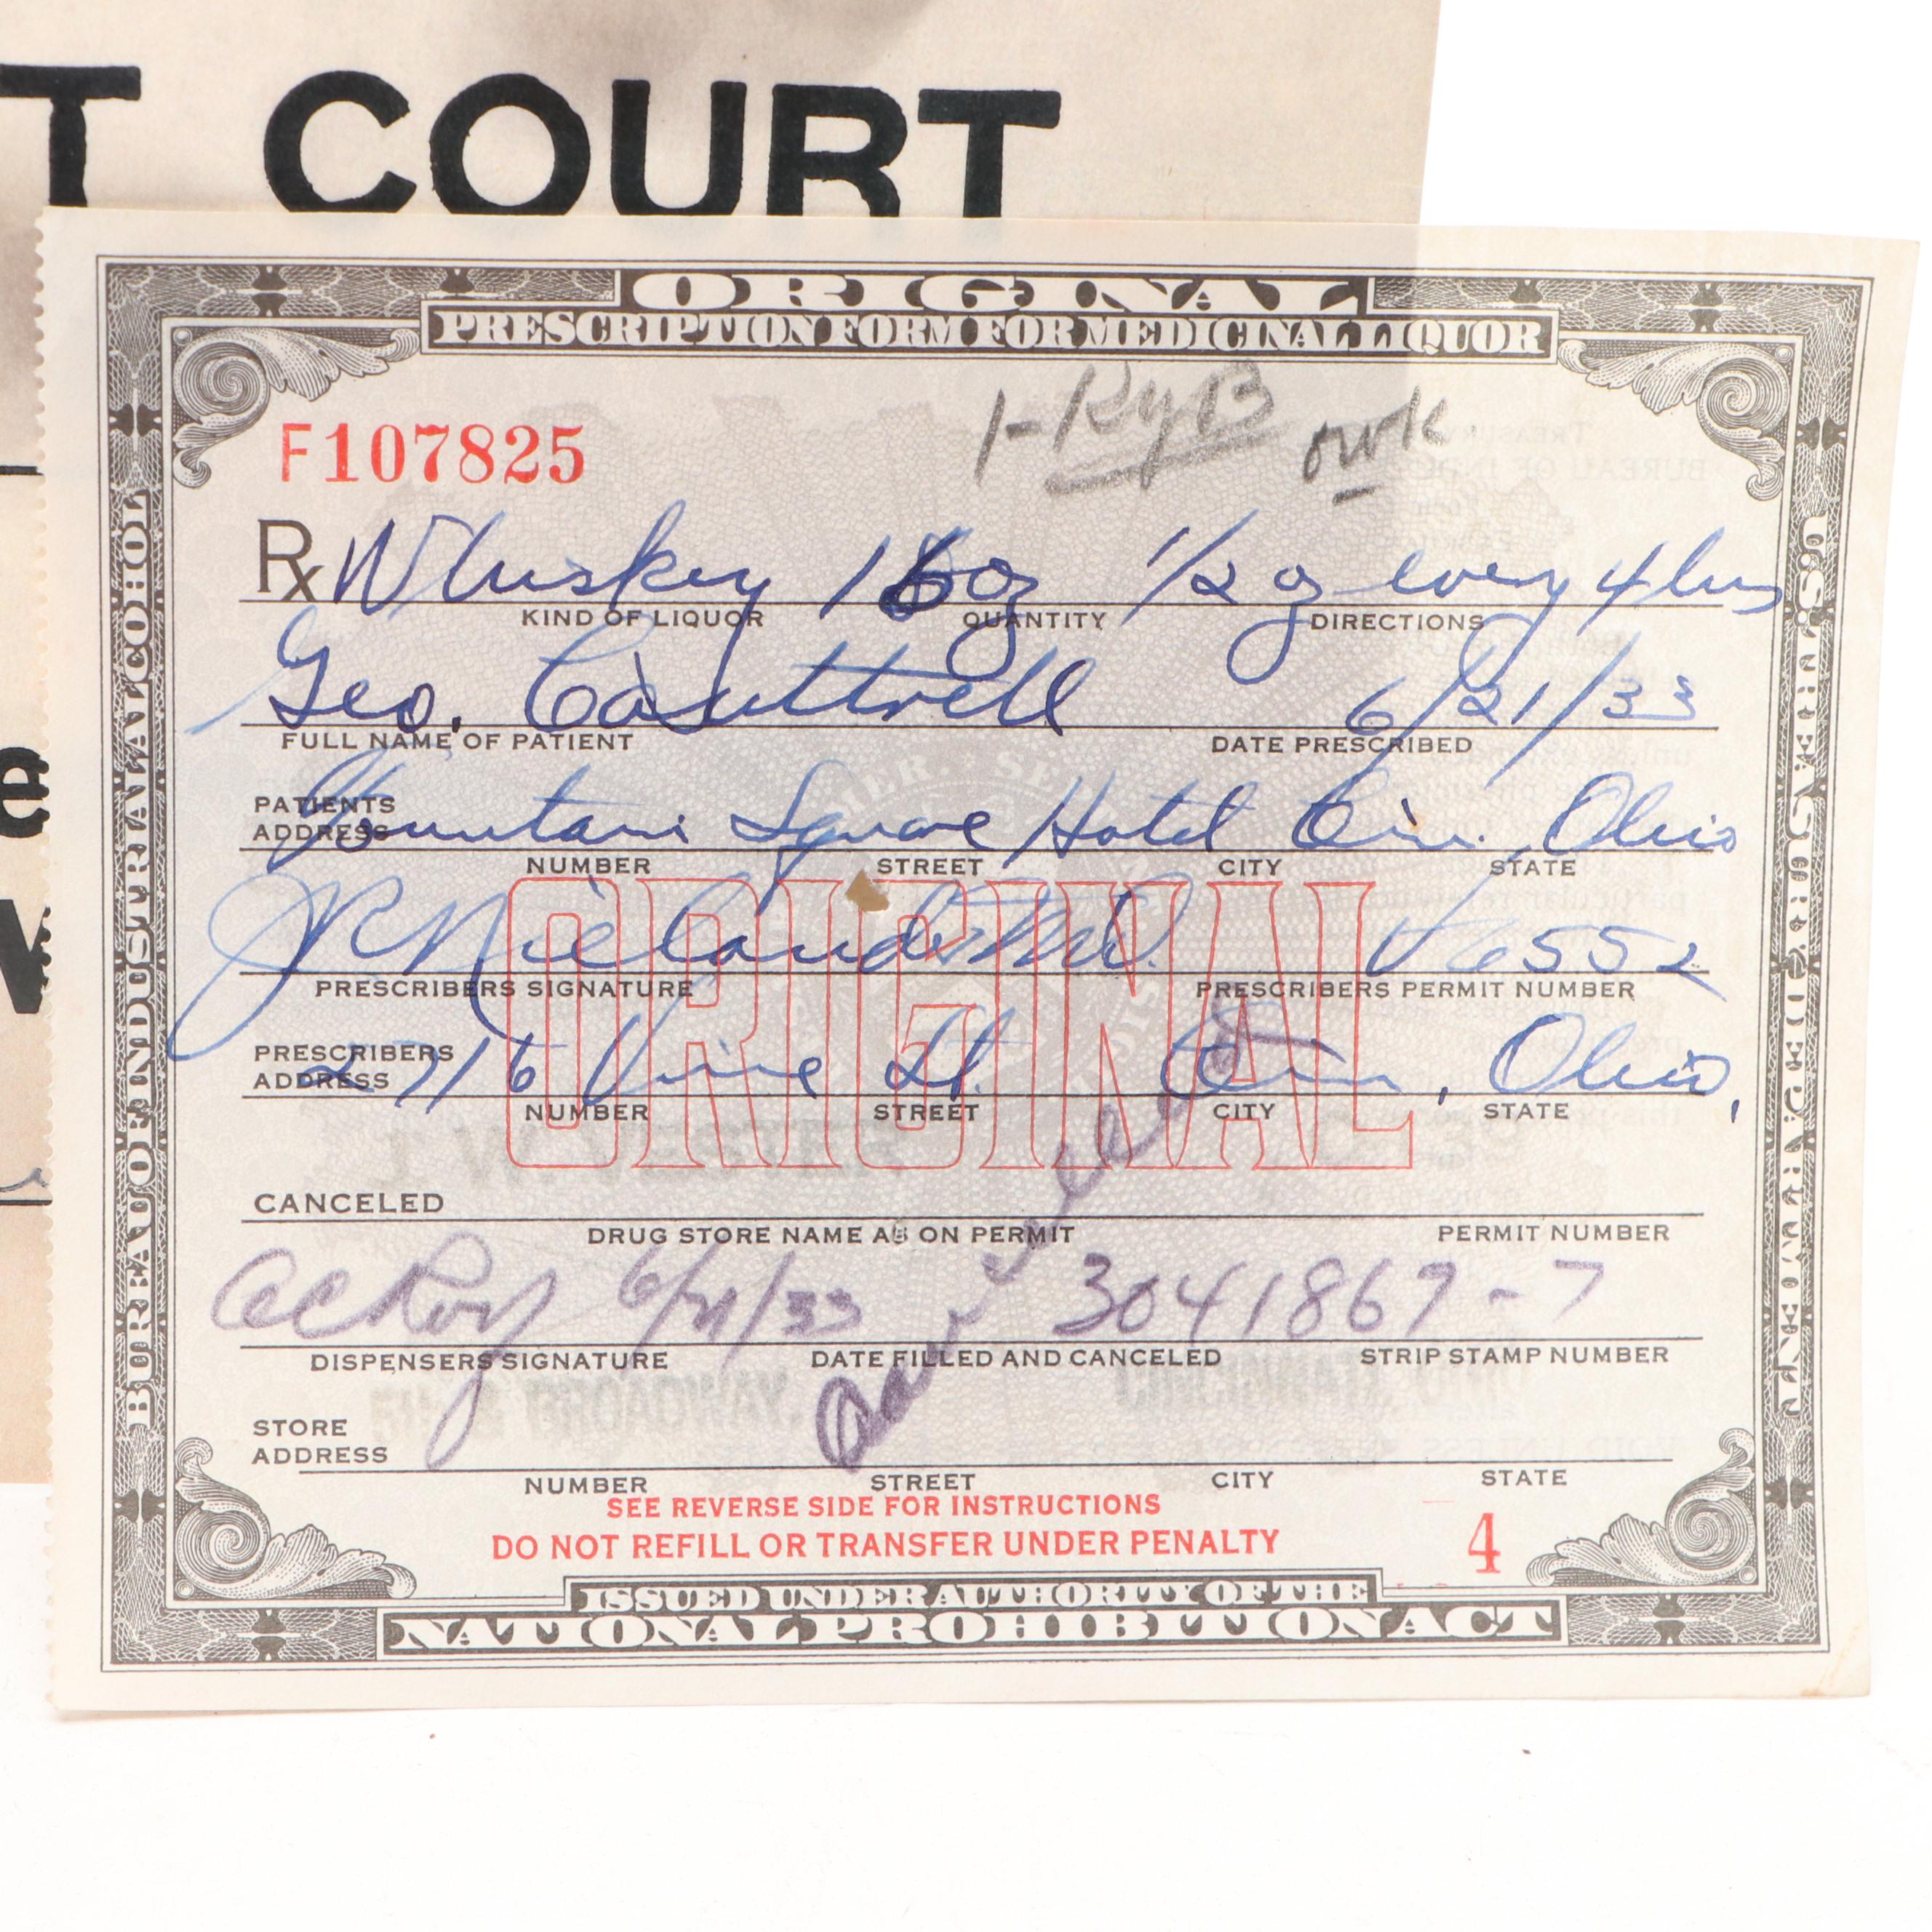 T COURT
ORIGINAL
PRESCRIPTION FORM FOR MEDICINAL LIQUOR
BUREAU OF INDUSTRIAL ALCOHOL
U.S. TREASURY DEPARTMENT
F107825
Rx Whiskey 16 oz 1/2 oz every 4 hrs
KIND OF LIQUOR QUANTITY DIRECTIONS
Geo. 6/21/33
FULL NAME OF PATIENT DATE PRESCRIBED
PATIENTS ADDRESS Fountain Square Hotel Cin. Ohio
NUMBER STREET CITY STATE
ORIGINAL
M.D. 6552
PRESCRIBERS SIGNATURE PRESCRIBERS PERMIT NUMBER
PRESCRIBERS ADDRESS 2716 Vine St. Cin, Ohio,
NUMBER STREET CITY STATE
CANCELED
DRUG STORE NAME AS ON PERMIT PERMIT NUMBER
6/21/33 3041867-7
DISPENSERS SIGNATURE DATE FILLED AND CANCELED STRIP STAMP NUMBER
5TH & BROADWAY. CINCINNATI, OHIO
STORE ADDRESS
NUMBER STREET CITY STATE
Cancelled
SEE REVERSE SIDE FOR INSTRUCTIONS
DO NOT REFILL OR TRANSFER UNDER PENALTY
4
ISSUED UNDER AUTHORITY OF THE
NATIONAL PROHIBITION ACT